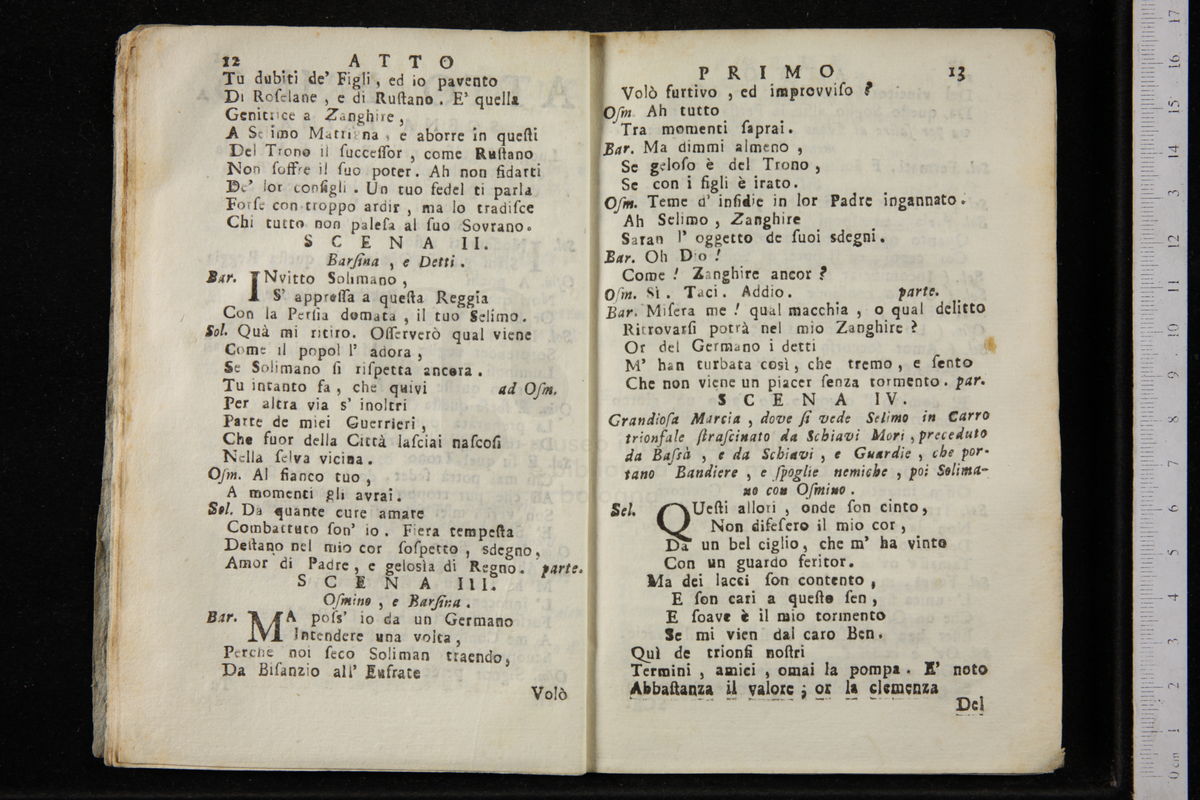 12 ATTO
Tu dubiti de' Figli, ed io pavento
Di Roſelane, e di Ruſtano. E' quella
Genitrice a Zanghire,
A Selimo Matrigna, e aborre in queſti
Del Trono il ſucceſſor, come Ruſtano
Non ſoffre il ſuo poter. Ah non fidarti
De' lor conſigli. Un tuo fedel ti parla
Forſe con troppo ardir, ma lo tradiſce
Chi tutto non paleſa al ſuo Sovrano.
SCENA II.
Barſina, e Detti.
Bar. INvitto Solimano,
S' appreſſa a queſta Reggia
Con la Perſia domata, il tuo Selimo.
Sol. Quà mi ritiro. Oſſerverò qual viene
Come il popol l' adora,
Se Solimano ſi riſpetta ancora.
Tu intanto fa, che quivi ad Oſm.
Per altra via s' inoltri
Parte de miei Guerrieri,
Che fuor della Città laſciai naſcoſi
Nella ſelva vicina.
Oſm. Al fianco tuo,
A momenti gli avrai.
Sol. Da quante cure amare
Combattuto ſon' io. Fiera tempeſta
Deſtano nel mio cor ſoſpetto, sdegno,
Amor di Padre, e gelosìa di Regno. parte.
SCENA III.
Oſmino, e Barſina.
Bar. MA poſs' io da un Germano
Intendere una volta,
Perche noi ſeco Soliman traendo,
Da Biſanzio all' Eufrate
Volò
PRIMO 13
Volò furtivo, ed improvviſo?
Oſm. Ah tutto
Tra momenti ſaprai.
Bar. Ma dimmi almeno,
Se geloſo è del Trono,
Se con i figli è irato.
Oſm. Teme d' inſidie in lor Padre ingannato.
Ah Selimo, Zanghire
Saran l' oggetto de ſuoi sdegni.
Bar. Oh Dio!
Come! Zanghire ancor?
Oſm. Sì. Taci. Addio. parte.
Bar. Miſera me! qual macchia, o qual delitto
Ritrovarſi potrà nel mio Zanghire?
Or del Germano i detti
M' han turbata così, che tremo, e ſento
Che non viene un piacer ſenza tormento. par.
SCENA IV.
Grandioſa Marcia, dove ſi vede Selimo in Carro
trionfale ſtraſcinato da Schiavi Mori, preceduto
da Baſsà, e da Schiavi, e Guardie, che por-
tano Bandiere, e ſpoglie nemiche, poi Solima-
no con Oſmino.
Sel. QUeſti allori, onde ſon cinto,
Non difeſero il mio cor,
Da un bel ciglio, che m' ha vinto
Con un guardo feritor.
Ma dei lacci ſon contento,
E ſon cari a queſto ſen,
E ſoave è il mio tormento
Se mi vien dal caro Ben.
Quì de trionfi noſtri
Termini, amici, omai la pompa. E' noto
Abbaſtanza il valore; or la clemenza
Del
17
16
15
14
13
12
11
10
9
8
7
6
5
4
3
2
1
0 cm